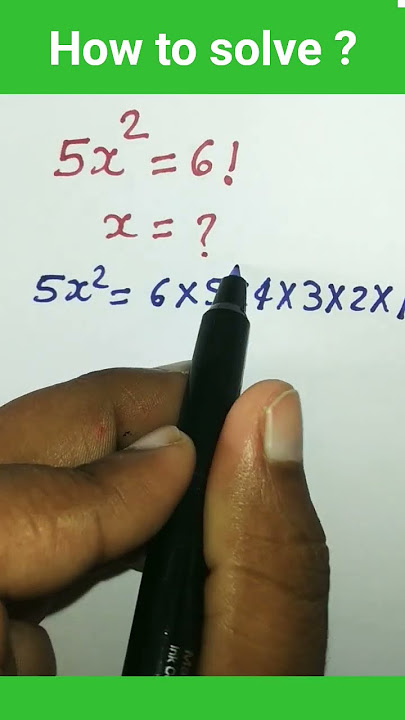 How to solve ?
5x² = 6!
x = ?
5x² = 6×5×4×3×2×1